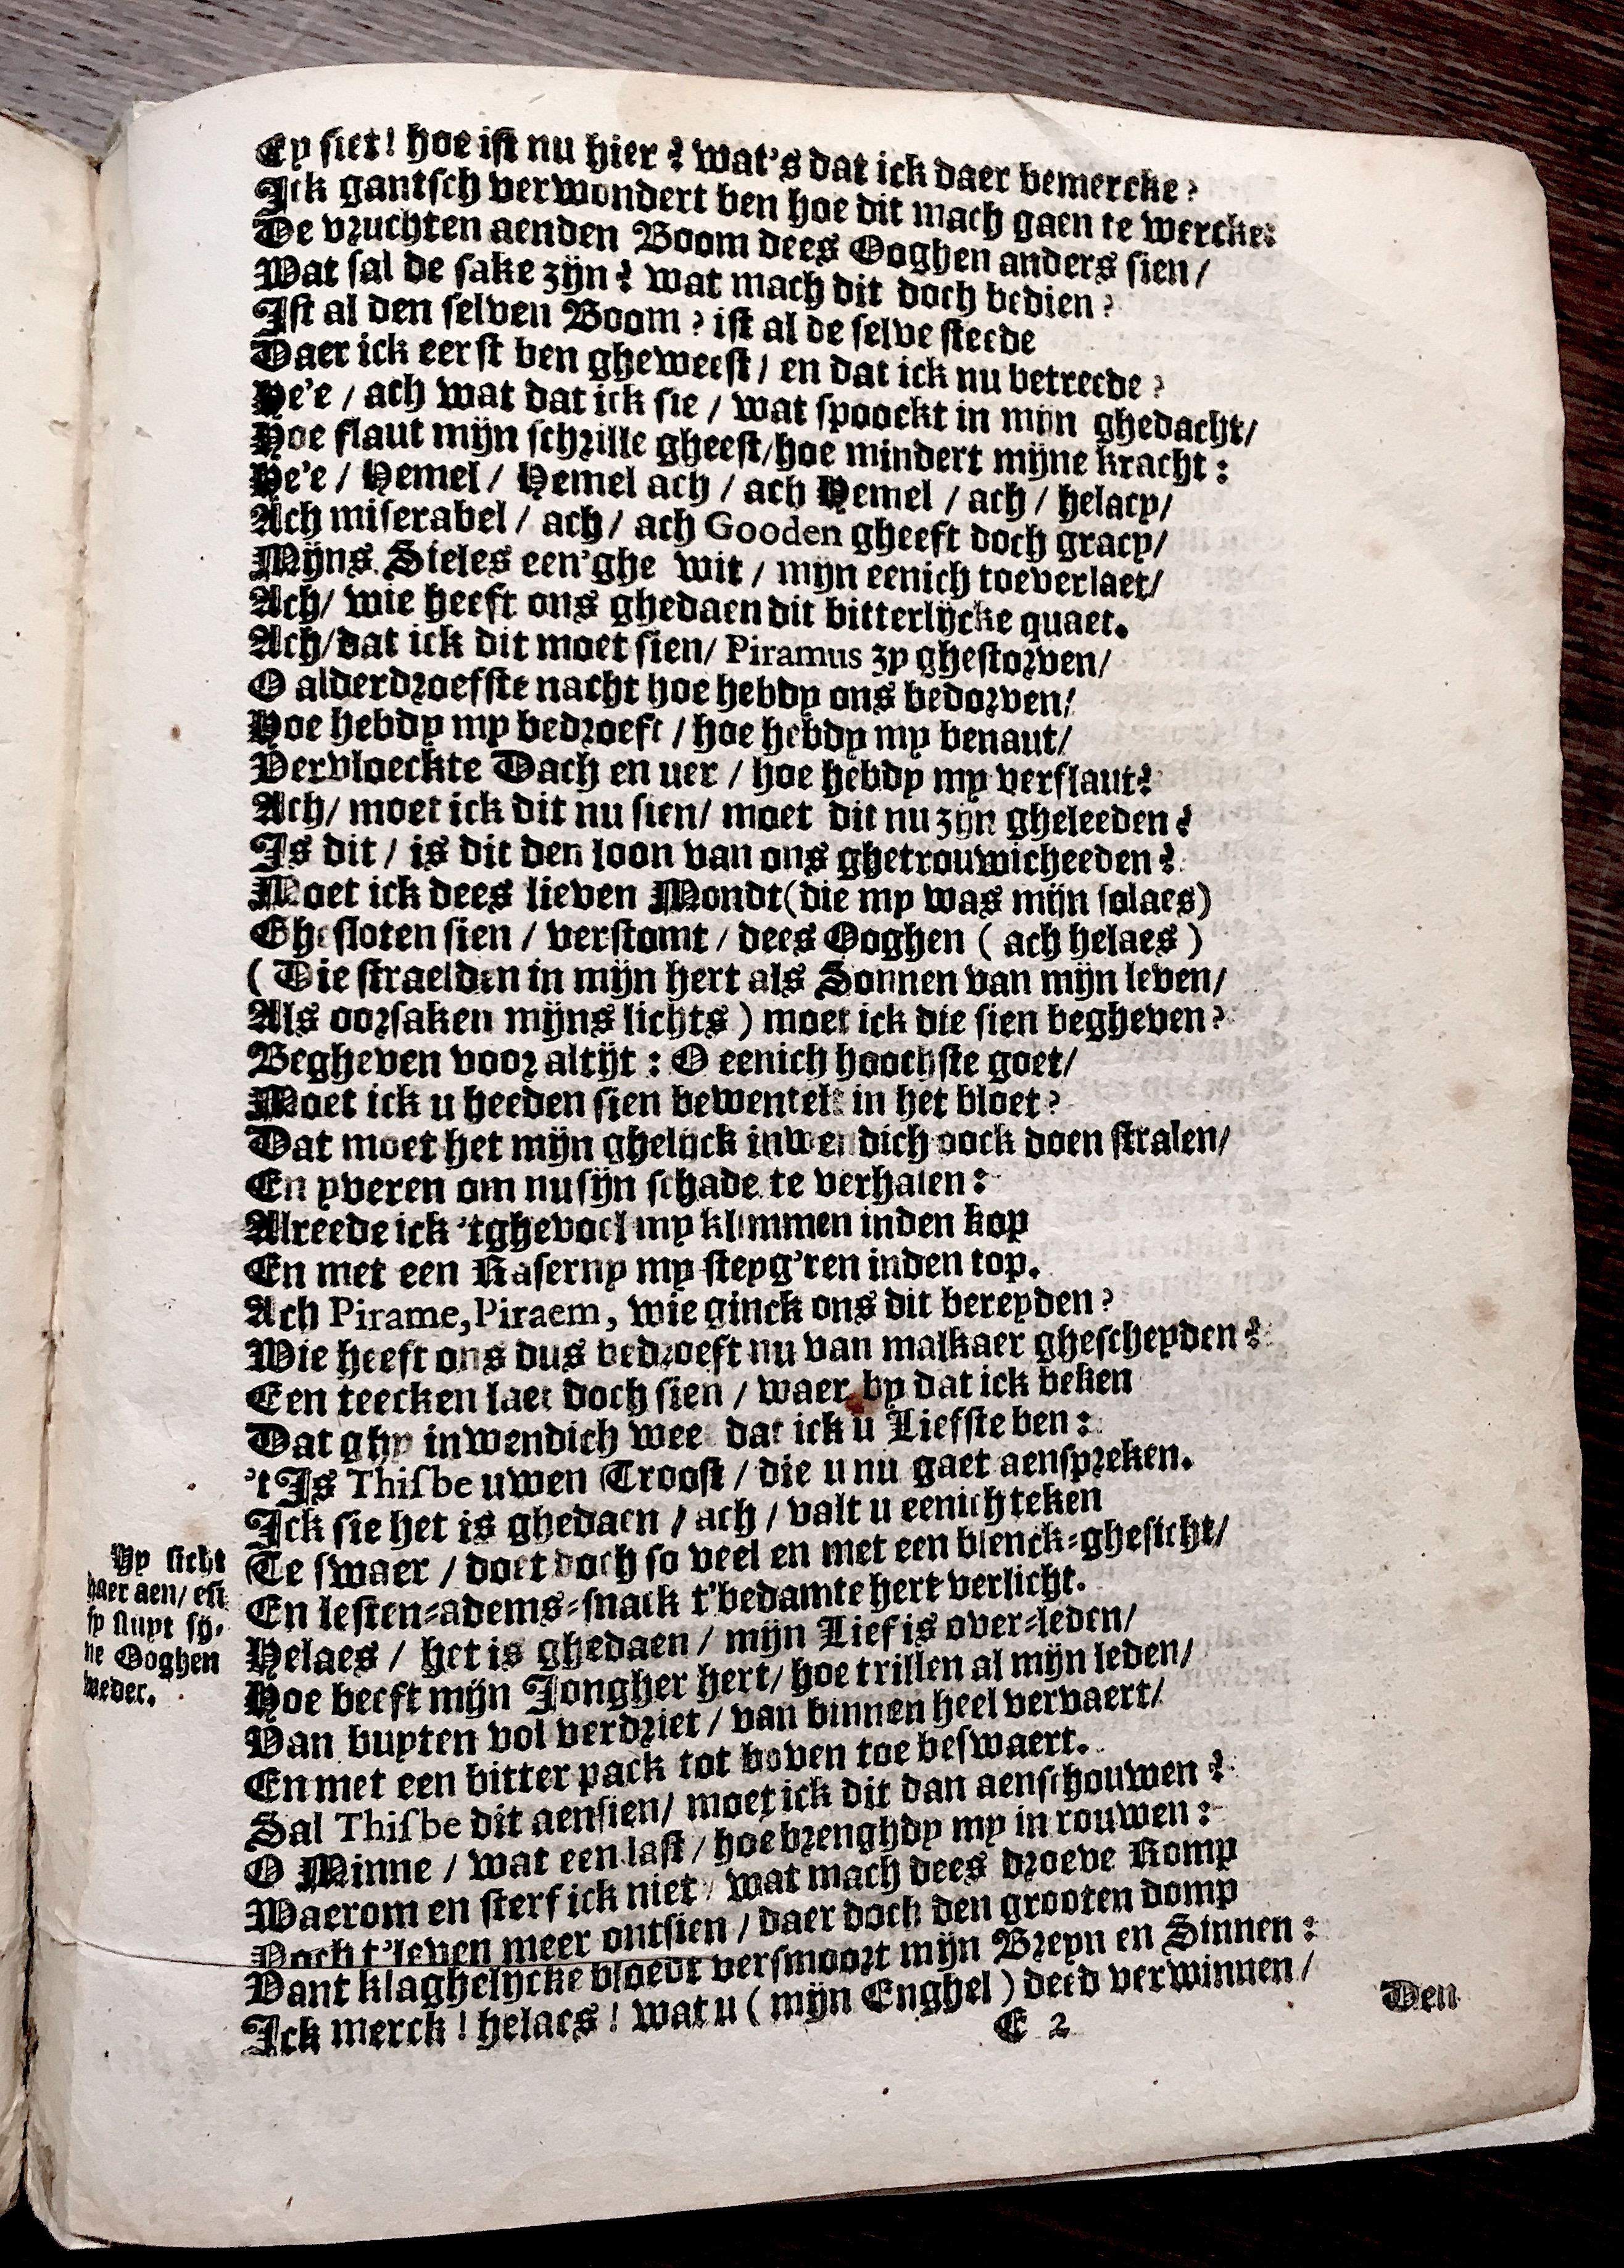 Ey siet! hoe ist nu hier? wat's dat ick daer bemercke?
Ick gantsch verwondert ben hoe dit mach gaen te wercke:
De vruchten aenden Boom dees Ooghen anders sien/
Wat sal de sake zijn? wat mach dit doch bedien?
Ist al den selven Boom? ist al de selve steede
Daer ick eerst ben gheweest/ en dat ick nu betreede?
He'e/ ach wat dat ick sie/ wat spoockt in mijn ghedacht/
Hoe flaut mijn schrille gheest/hoe mindert mijne kracht:
He'e/ Hemel/ Hemel ach/ ach Hemel/ ach/ helacy/
Ach miserabel/ ach/ ach Gooden gheeft doch gracy/
Mijns Sieles een'ghe wit/ mijn eenich toeverlaet/
Ach/ wie heeft ons ghedaen dit bitterlijcke quaet.
Ach/dat ick dit moet sien/ Piramus zy ghestorven/
O alderdroefste nacht hoe hebdy ons bedorven/
Hoe hebdy my bedroeft/ hoe hebdy my benaut/
Vervloeckte Dach en uer/ hoe hebdy my verflaut?
Ach/ moet ick dit nu sien/ moet dit nu zijn gheleeden?
Is dit/ is dit den loon van ons ghetrouwicheeden?
Moet ick dees lieven Mondt(die my was mijn solaes)
Ghesloten sien/ verstomt/ dees Ooghen (ach helaes)
(Die straelden in mijn hert als Sonnen van mijn leven/
Als oorsaken mijns lichts) moet ick die sien begheven?
Begheven voor altijt: O eenich hoochste goet/
Moet ick u heeden sien bewentelt in het bloet?
Dat moet het mijn ghelijck inwendich oock doen stralen/
En yveren om nu sijn schade te verhalen:
Alreede ick 'tghevoel my klimmen inden kop
En met een Raserny my steyg'ren inden top.
Ach Pirame, Piraem, wie ginck ons dit bereyden?
Wie heeft ons dus bedroeft nu van malkaer ghescheyden?
Een teecken laet doch sien/ waer by dat ick beken
Dat ghy inwendich weet dat ick u Liefste ben:
't Is Thisbe uwen Troost/ die u nu gaet aenspreken.
Ick sie het is ghedaen/ ach/ valt u eenich teken
Te swaer/ doet doch so veel en met een blenck-ghesicht/
En lesten-adems-snack t'bedamte hert verlicht.
Hy sicht
haer aen/ en
sy sluyt sij-
ne Ooghen
weder.
Helaes/ het is ghedaen/ mijn Lief is over-leden/
Hoe beeft mijn Jongher hert/ hoe trillen al mijn leden/
Van buyten vol verdriet/ van binnen heel vervaert/
En met een bitter pack tot boven toe beswaert.
Sal Thisbe dit aensien/ moet ick dit dan aenschouwen?
O Minne/ wat een last/ hoe brenghdy my in rouwen:
Waerom en sterf ick niet/ wat mach dees droeve Romp
Noch t'leven meer ontsien/ daer doch den grooten domp
Vant klaghelijcke bloedt versmoort mijn Breyn en Sinnen:
Ick merck! helaes! wat u (mijn Enghel) deed verwinnen/
E 2
Den